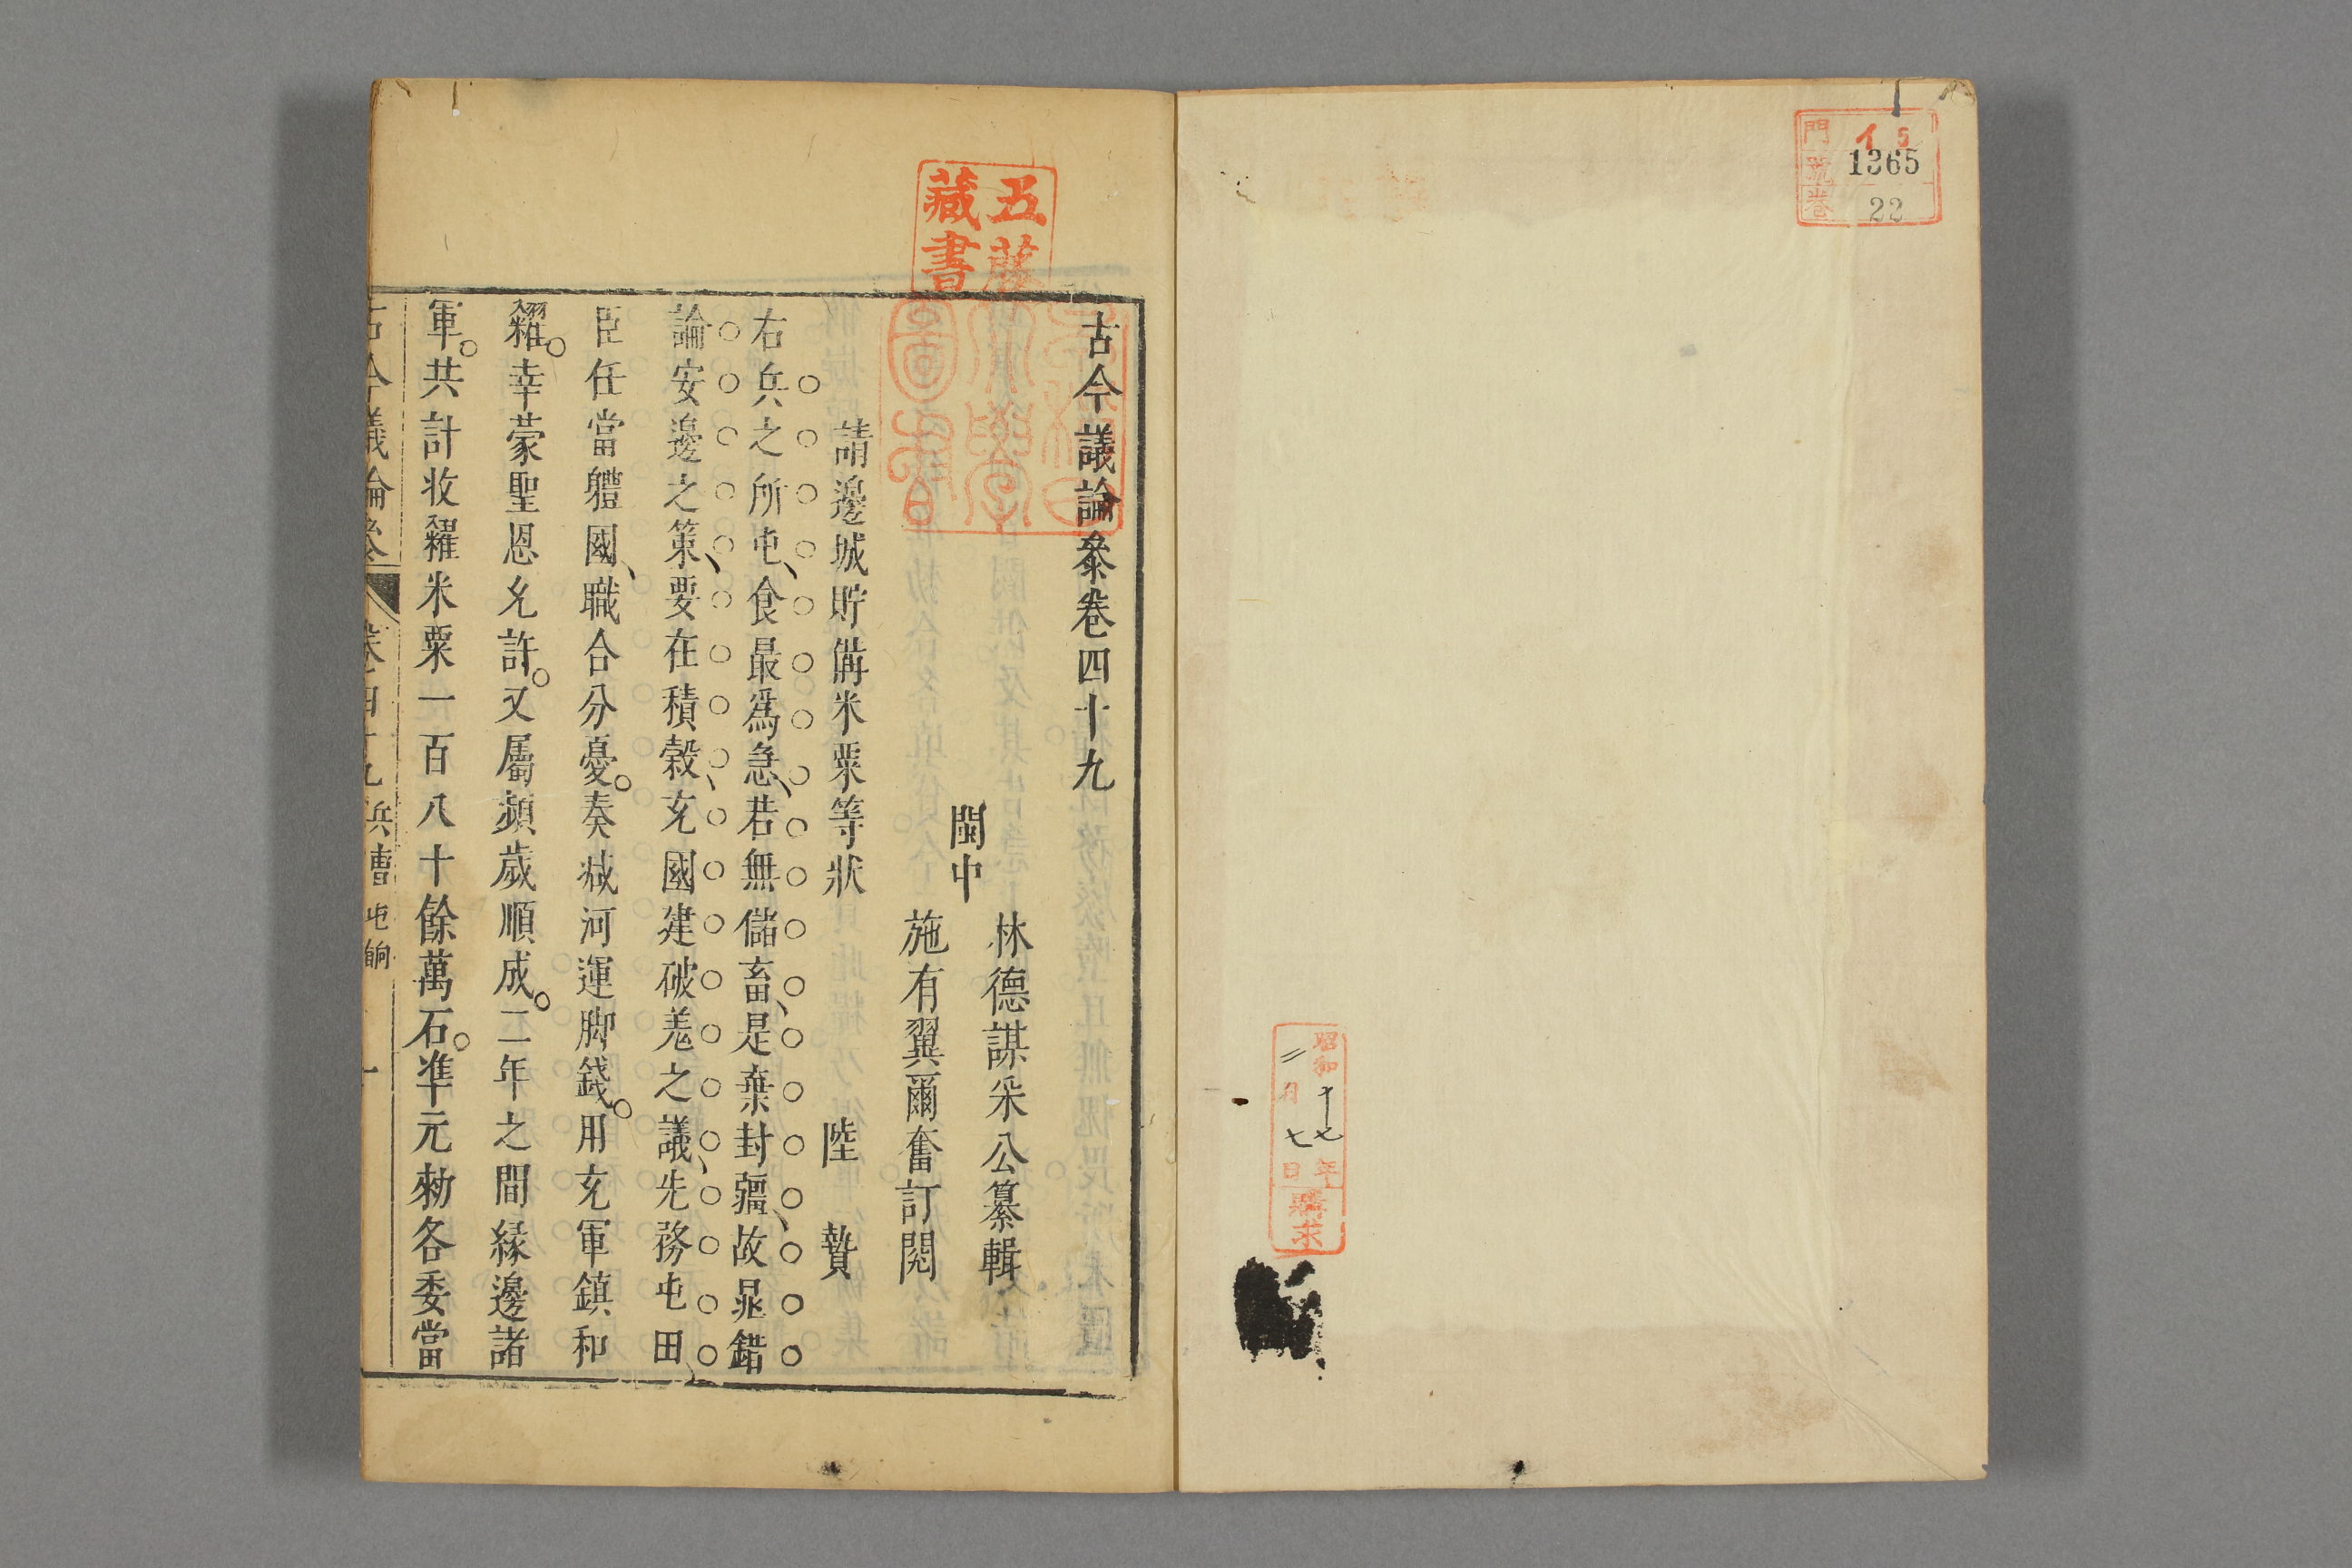 門 イ5
號 1365
卷 22
昭和十七年
二月七日
購求
五
藏書
早稻田
大學
圖書
古今議論叅卷四十九
閩中
林德謀采公纂輯
施有翼爾奮訂閱
請邊城貯備米粟等狀
陸贄
右兵之所屯、食最爲急、若無儲畜、是棄封疆、故鼂錯
論安邊之策、要在積穀、充國建破羌之議、先務屯田
臣任當軆國、職合分憂。奏减河運脚錢。用充軍鎮和
糴。幸蒙聖恩允許。又屬頻歲順成。二年之間緣邊諸
軍。共計收糴米粟一百八十餘萬石。準元勑各委當
古今議論叅 卷四十九 兵曹 屯餉 一